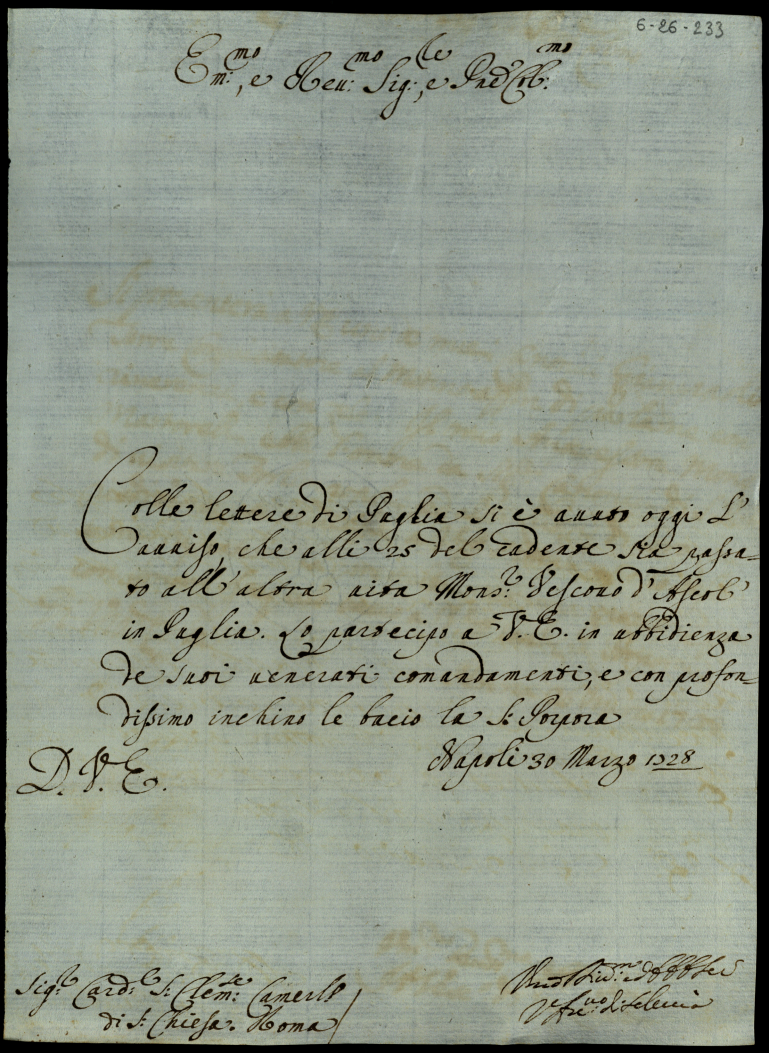 6-26-233
Em:mo, e Reu:mo Sig:re, e Pne Col:mo
Colle lettere di Puglia si è auuto oggi L'
auuiso, che alli 25 del cadente sia passa-
to all'altra uita Mons:r Vescouo d'Ascoli
in Puglia. Lo partecipo a V.E. in ubbidienza
de suoi uenerati comandamenti, e con profon-
dissimo inchino le bacio la S: Porpora
D. V. E.
Napoli 30 Marzo 1728
Sig:r Card:le S: Clem:te Camerl:o
di S: Chiesa. Roma